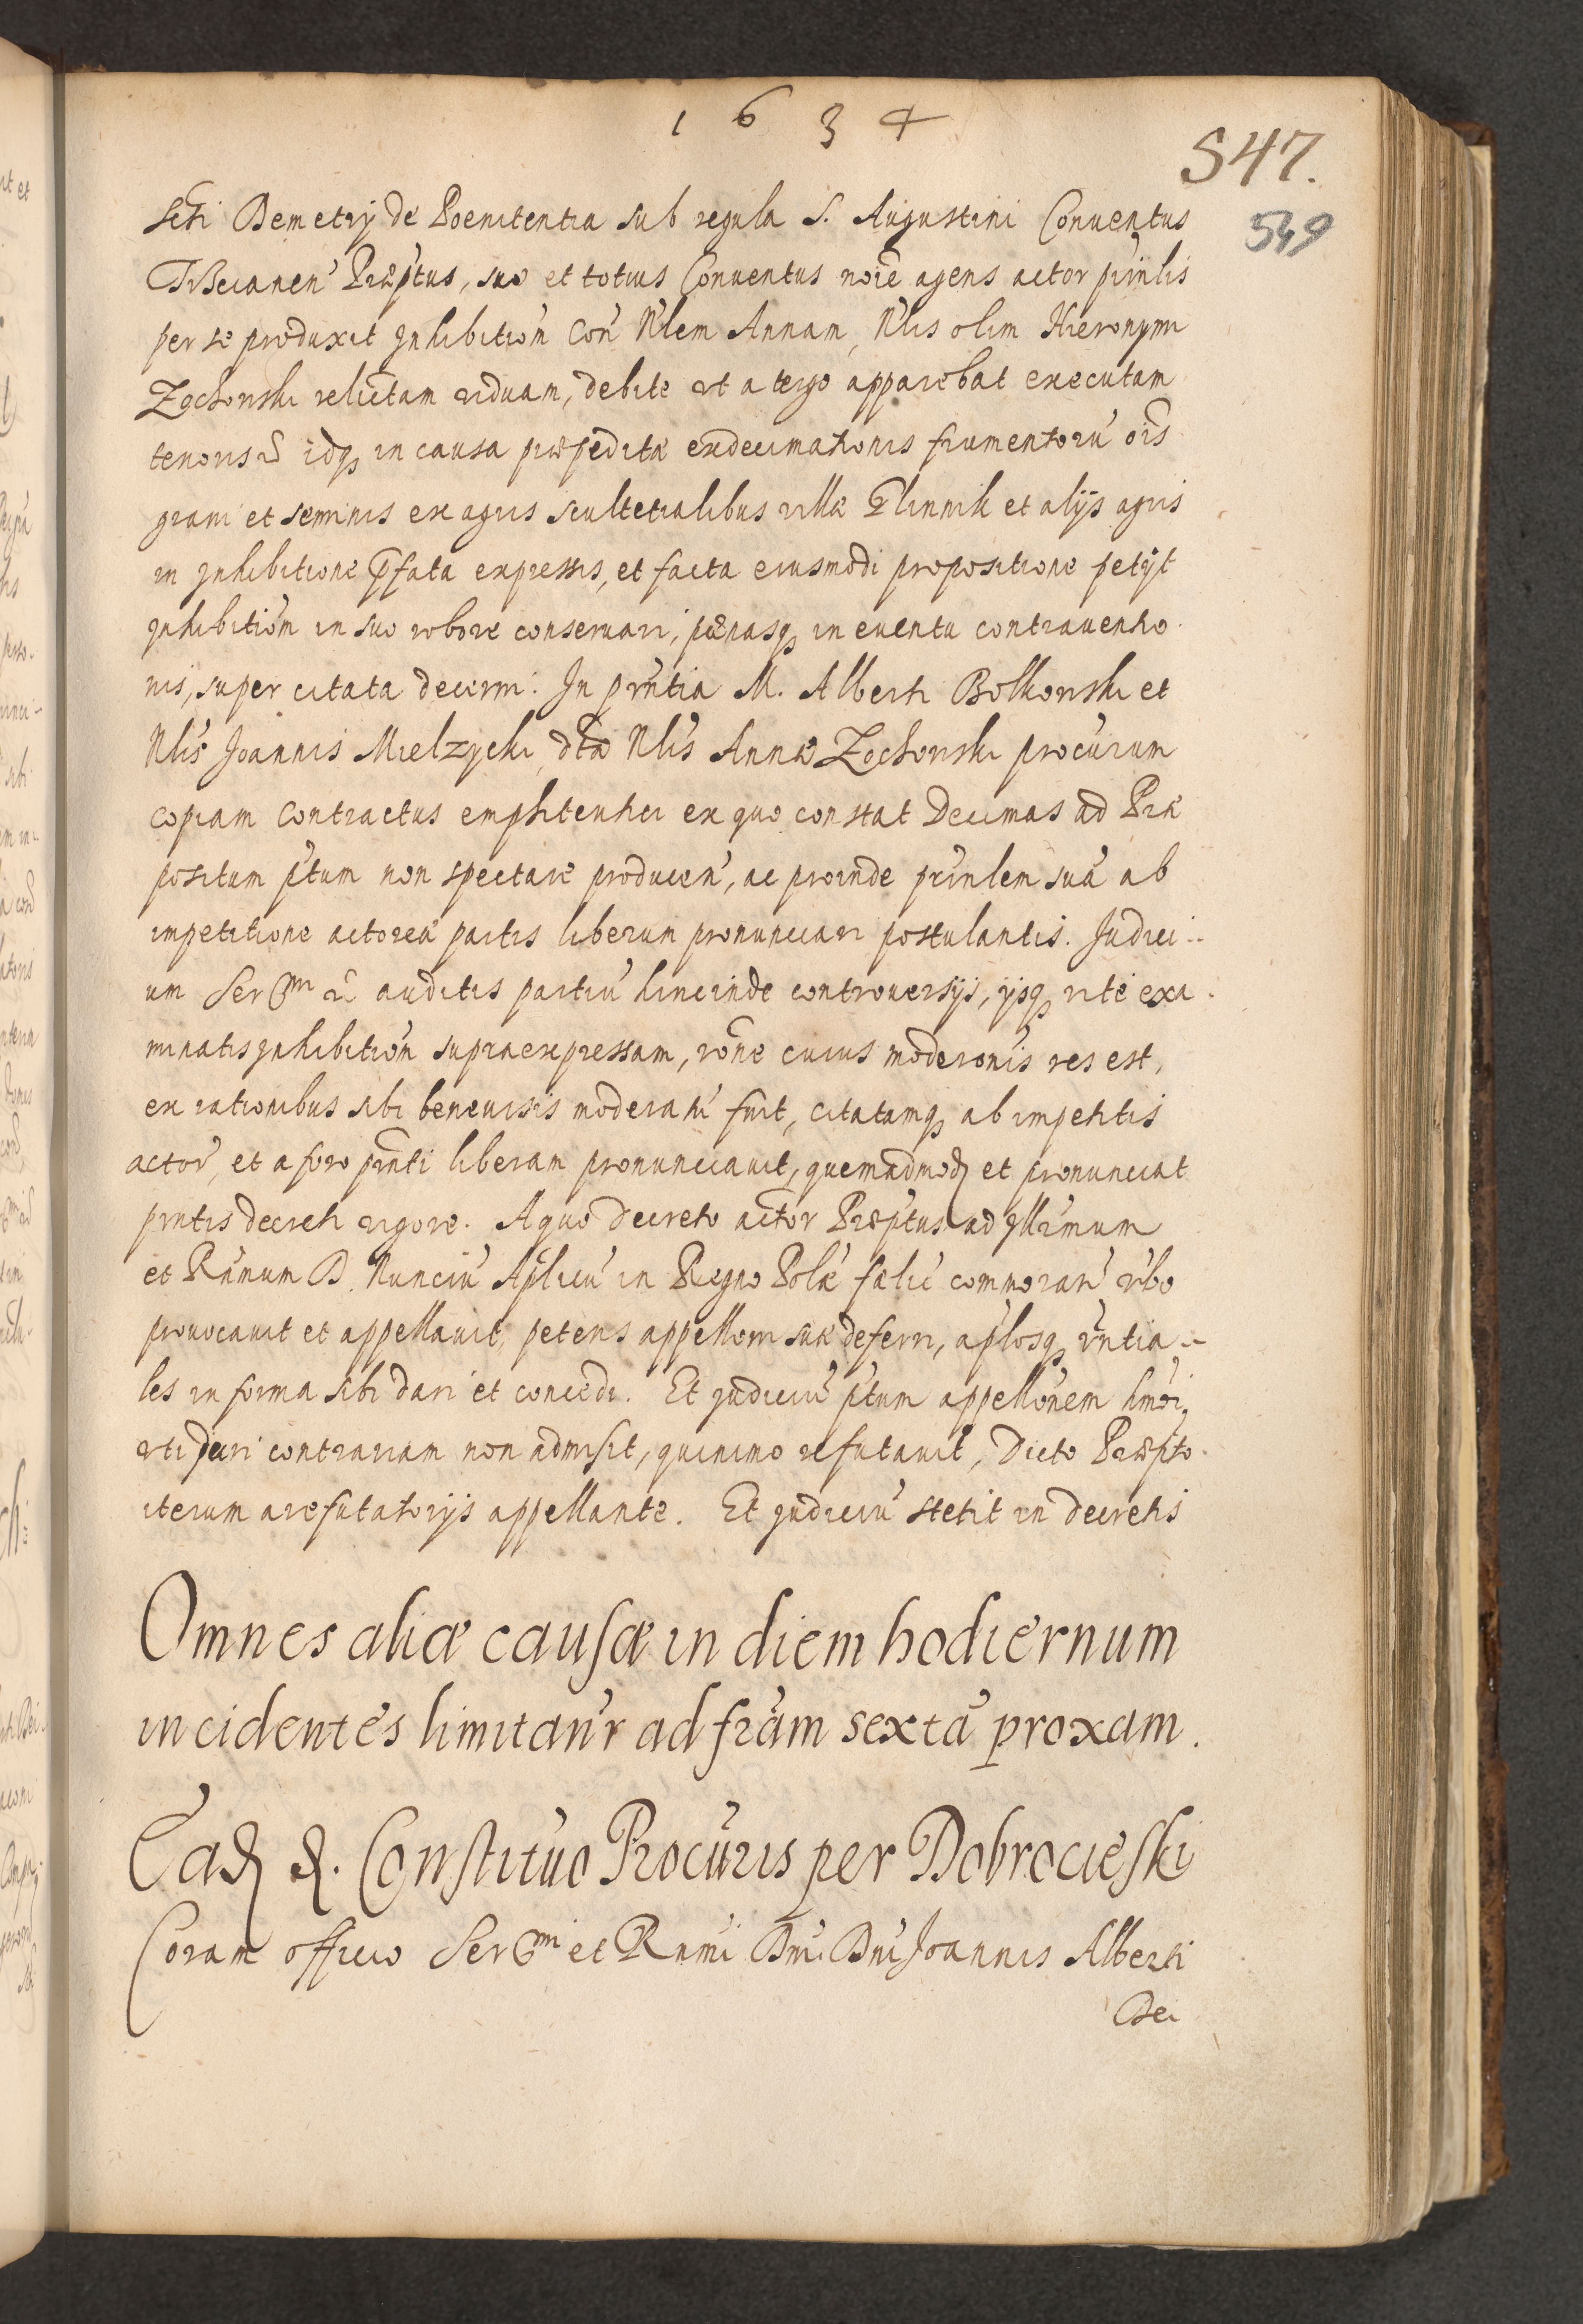 1634
547.
549
Scti Demetrij de Poenitentia sub regula S. Augustini Conuentus
Præptus, suo et totius Conuentus noie agens actor prinlis
per se produxit Inhibition Con Nlem Annam, Nlis olim Hieronymi
Zochowski relictam viduam, debite vt a tergo apparebat executam
tenoris idq in causa præpeditæ exdecimationis frumentoru ois
grani et seminis ex agris scultetialibus villæ Glinnik et alijs agris
in Inhibitione pfata expressis, et facta eiusmodi propositione petijt
Inhibition in suo robore conseruari, poenasq in euentu contrauentio
nis, super citata decerni. In prntia M. Alberti Bolkowski et
Nlis Joannis Mielzycki, dtæ Nlis Annæ Zochowski procurum
copiam Contractus emphiteutici ex quo constat Decimas ad Præ
positum ptum non spectare producen, ac proinde prinlem sua ab
impetitione actoreæ partis liberum pronunciari postulantis. Judici
um Sermi auditis partiu hincinde controuersijs, ijsq rite exa
minatis Inhibition supraexpressam, rone cuius moderonis res est,
ex rationibus sibi beneuisis moderatu fuit, citatamq ab impetitis
actor, et a foro prnti liberam pronunciauit, quemadmod et pronunciat
prntis decreti vigore. A quo decreto actor Præptus ad Illrmum
et Rnmum D. Nunciu Aplicu in Regno Polæ fælic commoran vbo
prouocauit et appellauit, petens appellom suæ deferri, aplosq rntia
les in forma sibi dari et concedi. Et Judiciu ptum appellonem hmoi
vti juri contrariam non admisit, quinimo refutauit, Dicto Præpto
iterum a refutatorijs appellante. Et Judiciu stetit in decretis
Omnes aliæ causæ in diem hodiernum
incidentes limitanr ad fram sexta proxam.
Ead d. Constituo Procuris per Dobrocieski
Coram officio Sermi et Rnmi Dni Dni Joannis Alberti
Dei